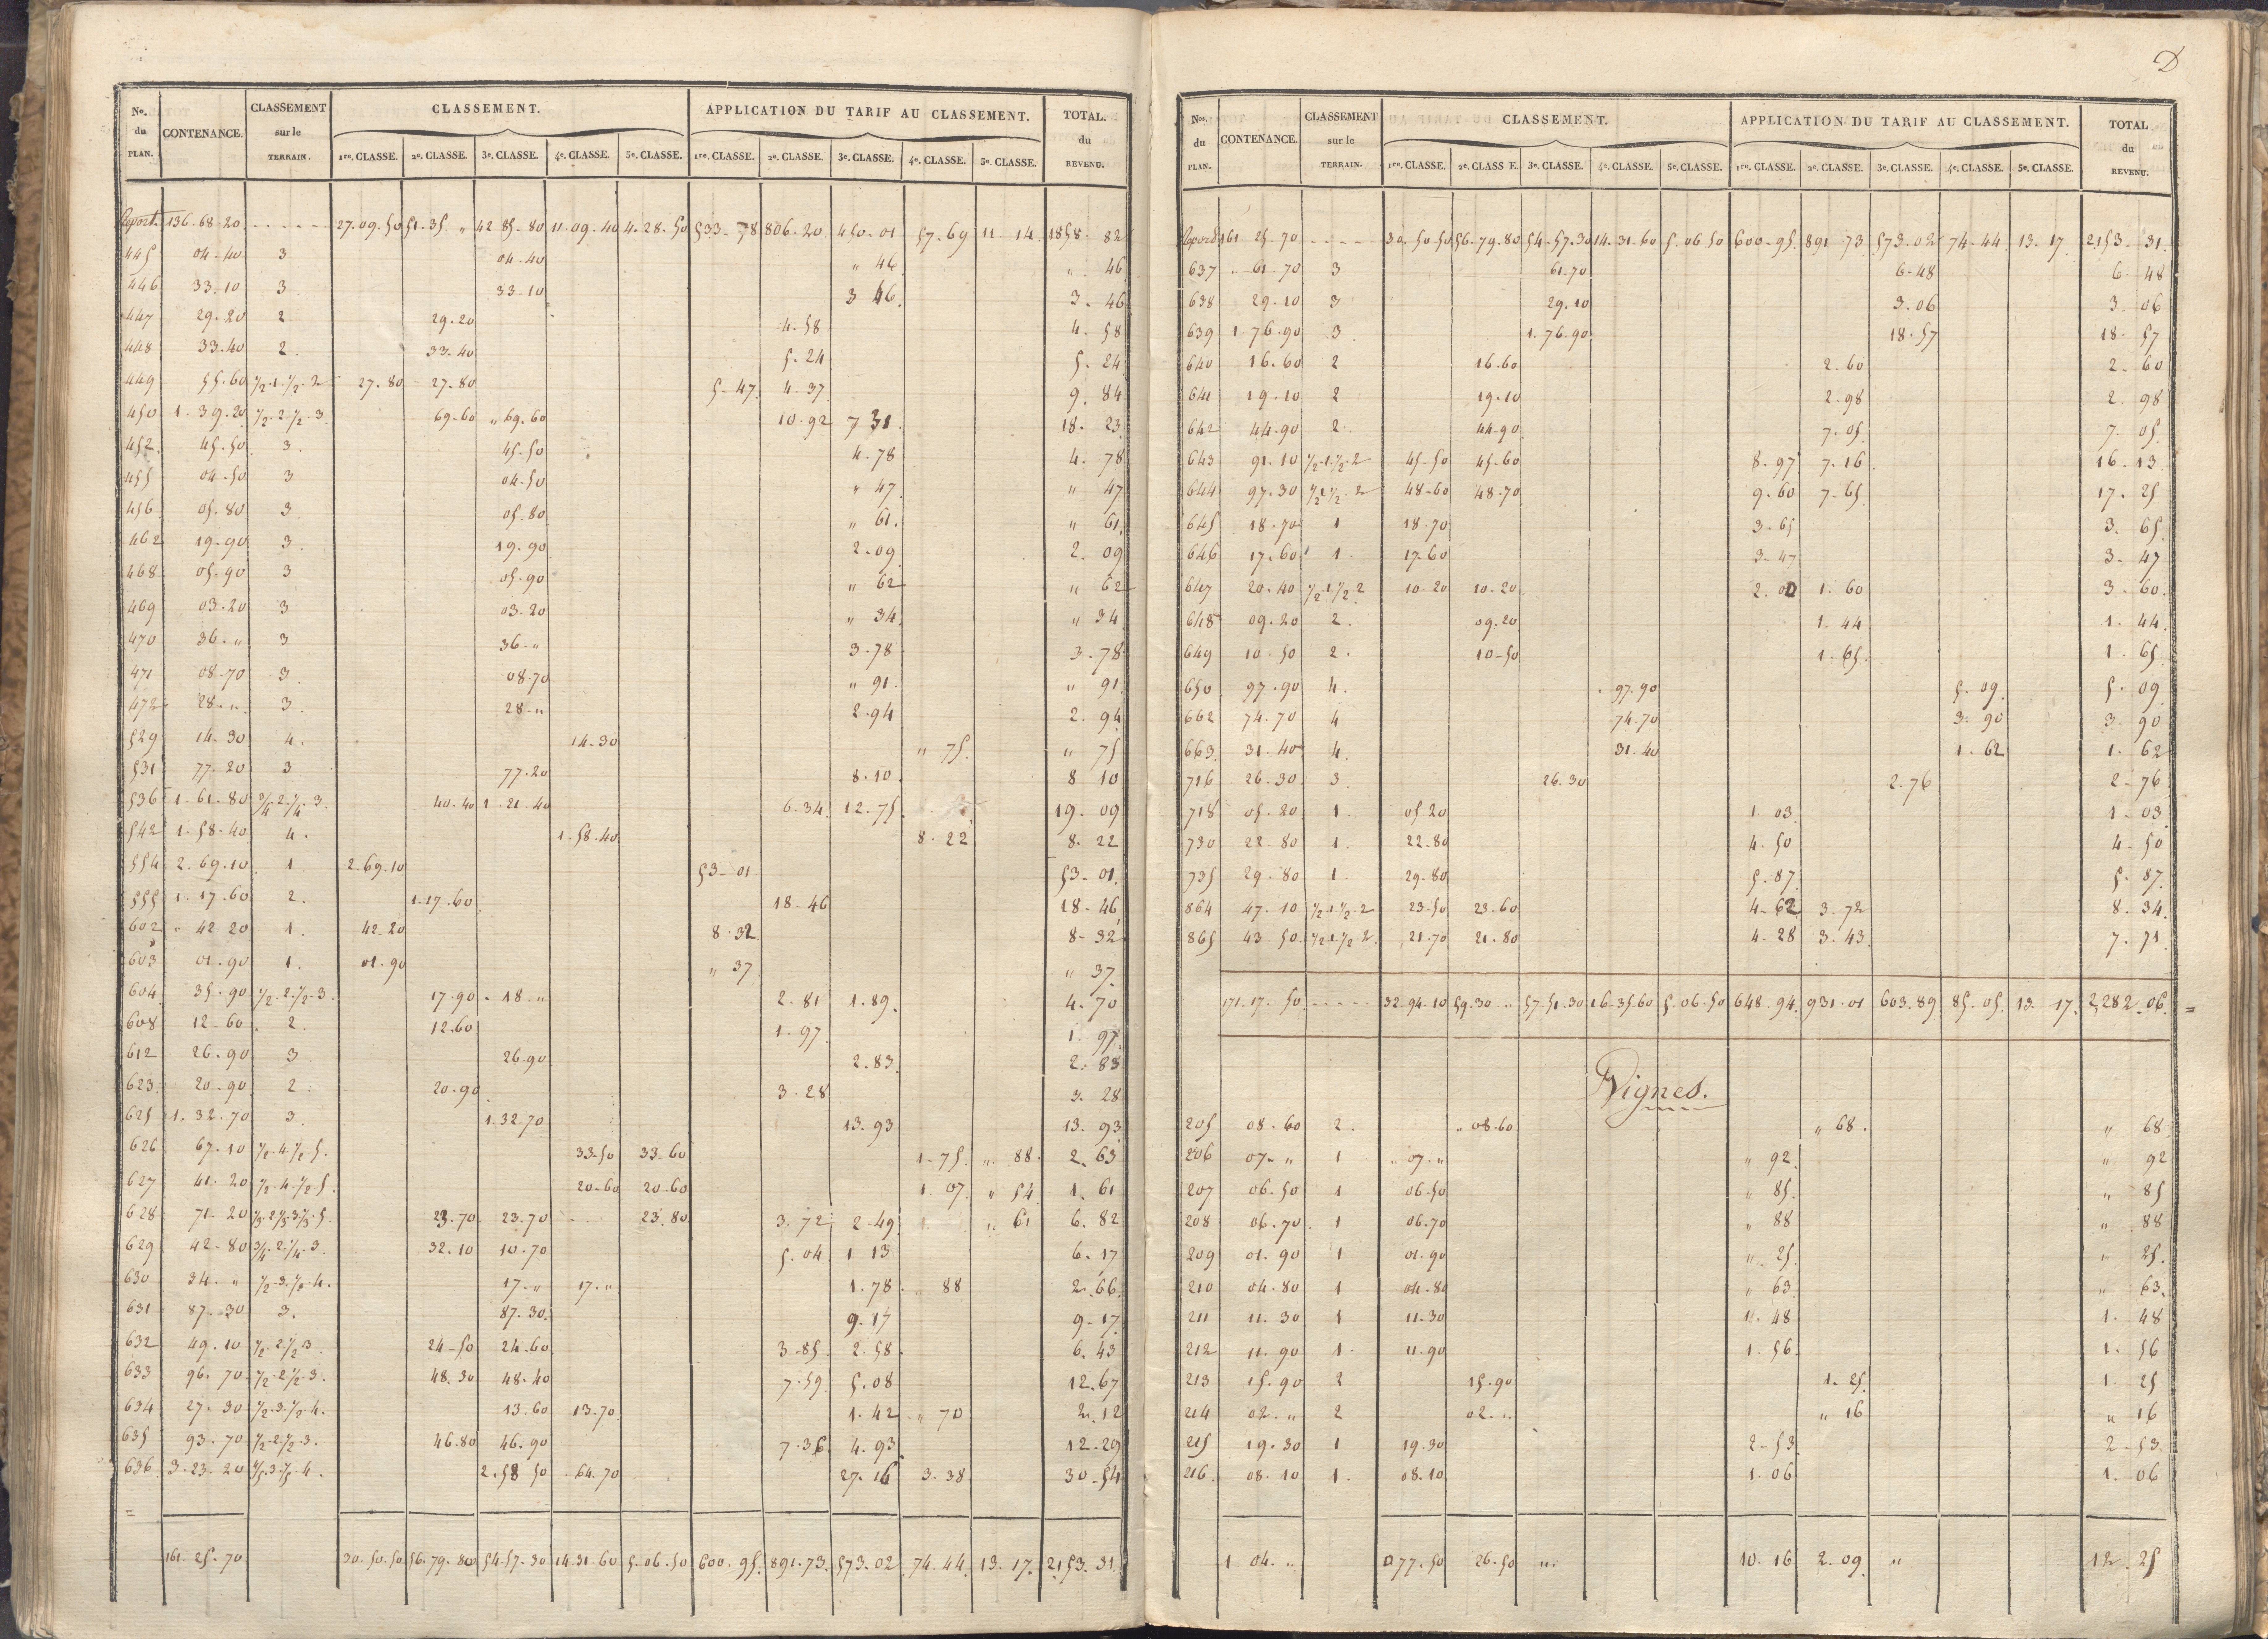 No. du PLAN. CONTENANCE. CLASSEMENT sur le TERRAIN. CLASSEMENT. APPLICATION DU TARIF AU CLASSEMENT. TOTAL. du REVENU.
1re. CLASSE. 2e. CLASSE. 3e. CLASSE. 4e. CLASSE. 5e. CLASSE. 1re. CLASSE. 2e. CLASSE. 3e. CLASSE. 4e. CLASSE. 5e. CLASSE.
Report. 136.68.20 27.09.50 51.35. " 42.85.80 11.09.40 4.28.50 533.78 806.20 450.01 57.69 11.14 1858.82
445 04.40 3 04.40 " 46 " 46
446 33.10 3 33.10 3 46 3.46
447 29.20 2 29.20 4.58 4.58
448 33.40 2. 33.40 5.24 5.24
449 55.60 1/2.1.1/2.2 27.80 27.80 5.47 4.37 9.84
450 1.39.20 1/2.2.1/2.3 69.60 " 69.60 10.92 7 31 18.23
452. 45.50 3. 45.50 4.78 4.78
455 04.50 3 04.50 " 47 " 47
456 05.80 3 05.80 " 61. " 61
462 19.90 3. 19.90 2.09 2.09
468 05.90 3 05.90 " 62 " 62
469 03.20 3 03.20 " 34 " 34
470 36. " 3 36. " 3.78 3.78
471 08.70 3 08.70 " 91. " 91
472 28. " 3. 28. " 2.94 2.94
529 14.30 4. 14.30 " 75. " 75
531 77.20 3 77.20 8.10 8 10
536 1.61.80 3/4.2.1/4.3. 40.40 1.21.40 6.34 12.75 19.09
542 1.58.40 4. 1.58.40 8.22 8.22
554 2.69.10 1. 2.69.10 53.01 53.01
555 1.17.60 2. 1.17.60 18.46 18.46
602 " 42 20 1. 42.20 8.32 8.32
603 01.90 1. 01.90 " 37 " 37
604 35.90 1/2.2.1/2.3. 17.90 18. " 2.81 1.89 4.70
608 12.60 2. 12.60 1.97 1.97
612 26.90 3 26.90 2.83 2.83
623 20.90 2. 20.90 3.28 3.28
625 1.32.70 3. 1.32.70 13.93 13.93
626 67.10 1/2.4.1/2.5. 33.50 33.60 1.75. " 88 2.63
627 41.20 1/2.4.1/2.5. 20.60 20.60 1.07 " 54 1.61
628 71.20 1/3.2.1/3.3.1/3.5. 23.70 23.70 23.80 3.72 2.49 " 61 6.82
629 42.80 3/4.2.1/4.3. 32.10 10.70 5.04 1 13 6.17
630 34. " 1/2.3.1/2.4. 17. " 17. " 1.78 " 88 2.66
631 87.30 3. 87.30 9.17 9.17
632 49.10 1/2.2.1/2.3 24.50 24.60 3.85 2.58 6.43
633 96.70 1/2.2.1/2.3. 48.30 48.40 7.59 5.08 12.67
634 27.30 1/2.3.1/2.4. 13.60 13.70 1.42 " 70 2.12
635 93.70 1/2.2.1/2.3. 46.80 46.90 7.36 4.93 12.29
636 3.23.20 4/5.3.1/5.4. 2.58 50 64.70 27.16 3.38 30.54
161.25.70 30.50.50 56.79.80 54.57.30 14.31.60 5.06.50 600.95 891.73 573.02 74.44 13.17 2153.31
D
Nos. du PLAN. CONTENANCE. CLASSEMENT sur le TERRAIN. CLASSEMENT. APPLICATION DU TARIF AU CLASSEMENT. TOTAL du REVENU.
1re. CLASSE. 2e. CLASS E. 3e. CLASSE. 4e. CLASSE. 5e. CLASSE. 1re. CLASSE. 2e. CLASSE. 3e. CLASSE. 4e. CLASSE. 5e. CLASSE.
Report 161.25.70 30.50.50 56.79.80 54.57.30 14.31.60 5.06.50 600.95 891 73 573.02 74.44 13.17 2153.31
637 61.70 3 61.70 6.48 6 48
638 29.10 3 29.10 3.06 3 06
639 1.76.90 3 1.76.90 18.57 18.57
640 16.60 2 16.60 2.60 2.60
641 19.10 2 19.10 2.98 2.98
642 44.90 2. 44.90 7.05 7.05
643 91.10 1/2.1.1/2.2 45.50 45.60 8.97 7.16 16.13
644 97.30 1/2.1.1/2.2 48.60 48.70 9.60 7.65 17.25
645 18.70 1 18.70 3.65 3.65
646 17.60 1. 17.60 3.47 3.47
647 20.40 1/2.1.1/2.2 10.20 10.20 2.00 1.60 3.60
648 09.20 2. 09.20 1.44 1.44
649 10.50 2. 10.50 1.65 1.65
650 97.90 4. 97.90 5.09 5.09
662 74.70 4 74.70 3.90 3.90
663 31.40 4. 31.40 1.62 1.62
716 26.30 3. 26.30 2.76 2.76
718 05.20 1. 05.20 1.03 1.03
730 22.80 1. 22.80 4.50 4.50
735 29.80 1. 29.80 5.87 5.87
864 47.10 1/2.1.1/2.2 23.50 23.60 4.62 3.72 8.34
865 43.50 1/2.1.1/2.2. 21.70 21.80 4.28 3.43 7.71
171.17.50 32.94.10 59.30. " 57.51.30 16.35.60 5.06.50 648.94 931.01 603.89 85.05 13.17 2,282.06
Vignes.
205 08.60 2. " 08.60 " 68. " 68
206 07. " 1 " 07. " " 92 " 92
207 06.50 1 06.50 " 85. " 85
208 06.70 1 06.70 " 88 " 88
209 01.90 1 01.90 " 25 " 25.
210 04.80 1 04.80 " 63 " 63
211 11.30 1 11.30 1.48 1.48
212 11.90 1. 11.90 1.56 1.56
213 15.90 2 15.90 1.25 1.25
214 02. " 2 02. " " 16 " 16
215 19.30 1 19.30 2.53 2.53
216 08.10 1. 08.10 1.06 1.06
1 04. " 77.50 26.50 " 10.16 2.09 " 12.25